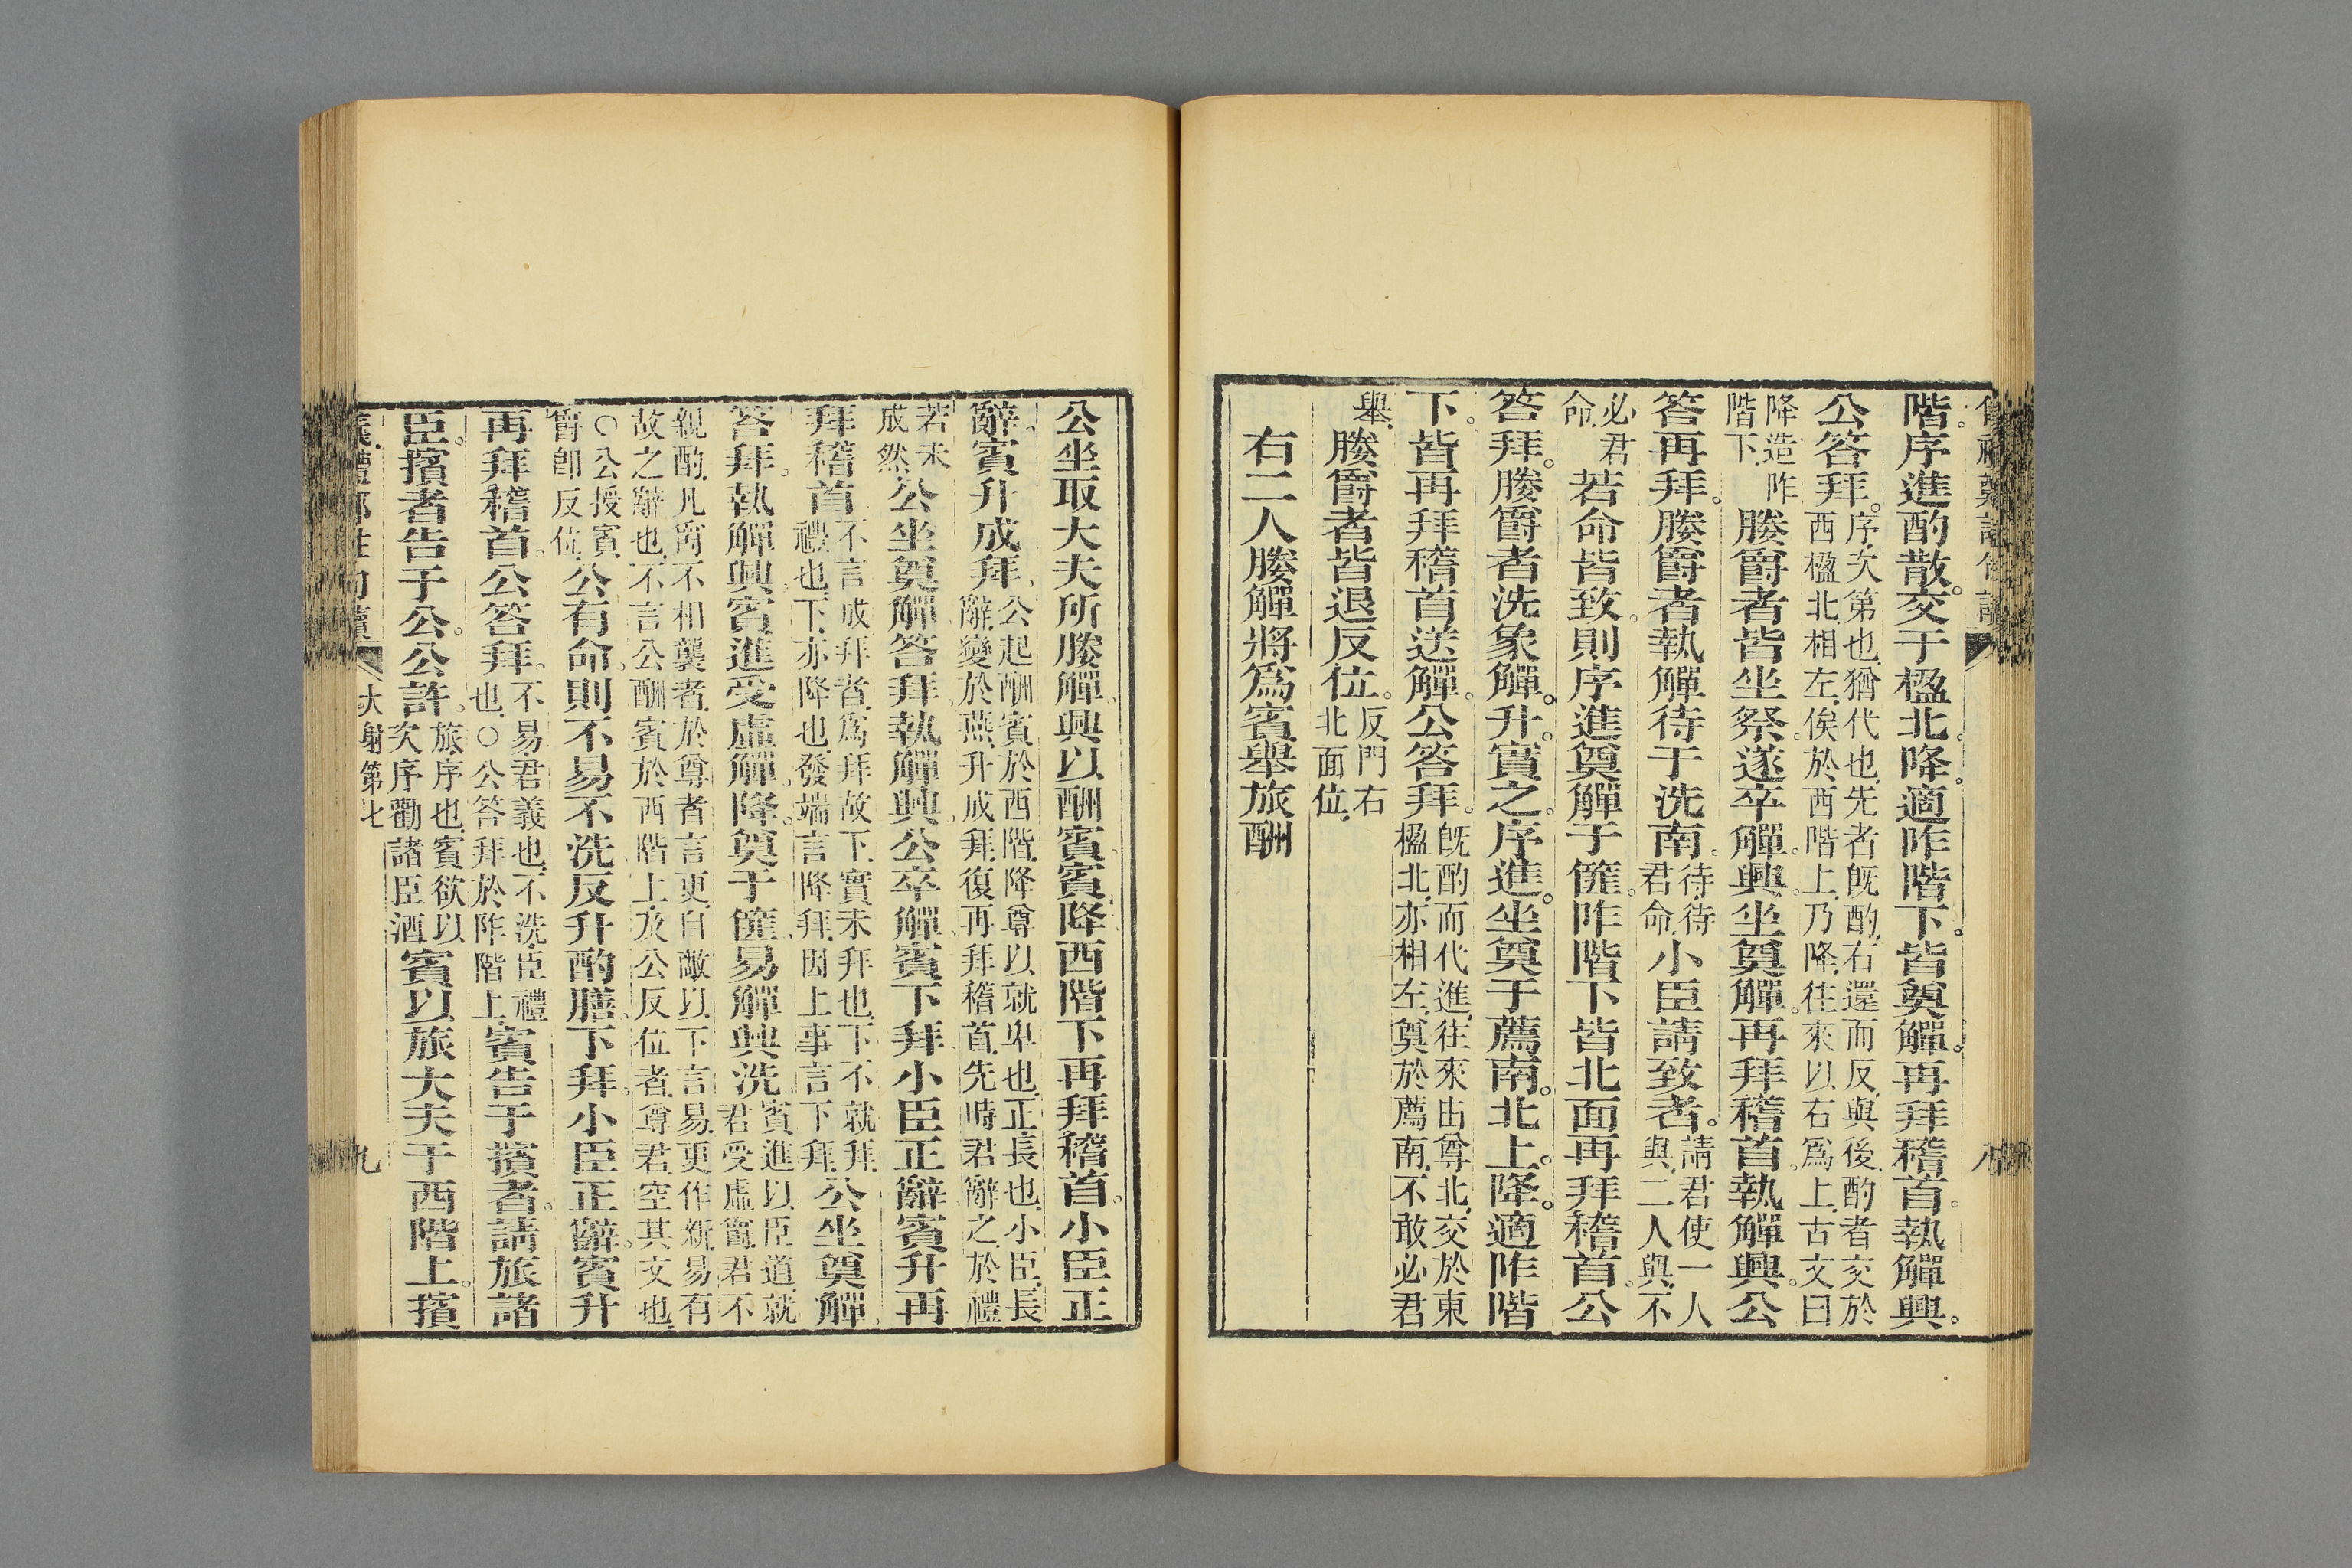 階。序進酌散。交于楹北。降。適阼階下。皆奠觶。再拜稽首。執觶興。
公答拜。序次第也猶代也先者既酌右還而反與後酌者交於
西楹北相左俟於西階上乃降往來以右爲上古文曰
降造阼
階下
媵爵者皆坐祭。遂卒觶。興。坐奠觶。再拜稽首。執觶興。公
答再拜。媵爵者執觶待于洗南。待待
君命
小臣請致者。請君使一人
與二人與不
必君
命
若命皆致。則序進奠觶于篚。阼階下皆北面再拜稽首。公
答拜。媵爵者洗象觶。升。實之。序進。坐奠于薦南。北上。降。適阼階
下。皆再拜稽首送觶。公答拜。既酌而代進往來由尊北交於東
楹北亦相左奠於薦南不敢必君
舉
媵爵者皆退反位。反門右
北面位
右二人媵觶將爲賓舉旅酬
公坐取大夫所媵觶興以酬賓。賓降西階下再拜稽首。小臣正
辭。賓升成拜。公起酬賓於西階降尊以就卑也正長也小臣長
辭變於燕升成拜復再拜稽首先時君辭之於禮
若未
成然
公坐奠觶答拜。執觶興。公卒觶。賓下拜小臣正辭賓升再
拜稽首。不言成拜者爲拜故下實未拜也下不就拜
禮也下亦降也發端言降拜因上事言下拜
公坐奠觶。
答拜。執觶興。賓進受虛觶。降。奠于篚。易觶興洗。賓進以臣道就
君受虛爵君不
親酌凡爵不相襲者於尊者言更自敵以下言易更作新易有
故之辭也不言公酬賓於西階上及公反位者尊君空其文也
○公授賓
爵卽反位
公有命。則不易不洗。反升酌膳。下拜。小臣正辭。賓升
再拜稽首。公答拜。不易君義也不洗臣禮
也○公答拜於阼階上
賓告于擯者。請旅諸
臣。擯者告于公。公許。旅序也賓欲以
次序勸諸臣酒
賓以旅大夫于西階上。擯
大射第七
九
八